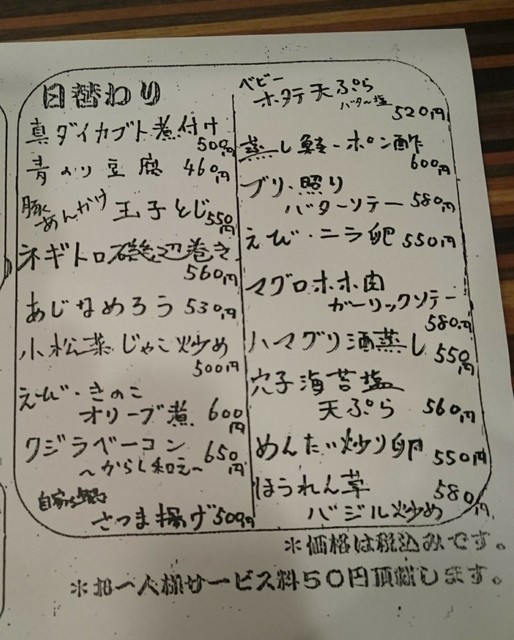 日替わり
真ダイカブト煮付け
500円
青のり豆腐 460円
豚あんかけ 玉子とじ 550円
ネギトロ磯辺巻き
560円
あじなめろう 530円
小松菜じゃこ炒め
500円
えび・きのこ
オリーブ煮 600円
クジラベーコン 650円
～からし和え～
自家製
さつま揚げ 500円
ベビー
ホタテ天ぷら
バター塩
520円
蒸し鮭・ポン酢
600円
ブリ・照り
バターソテー 580円
えび・ニラ卵 550円
マグロホホ肉
ガーリックソテー
580円
ハマグリ酒蒸し 550円
穴子海苔塩
天ぷら 560円
めんたい炒り卵
550円
ほうれん草 580円
バジル炒め
＊価格は税込みです。
＊お一人様サービス料50円頂戴します。